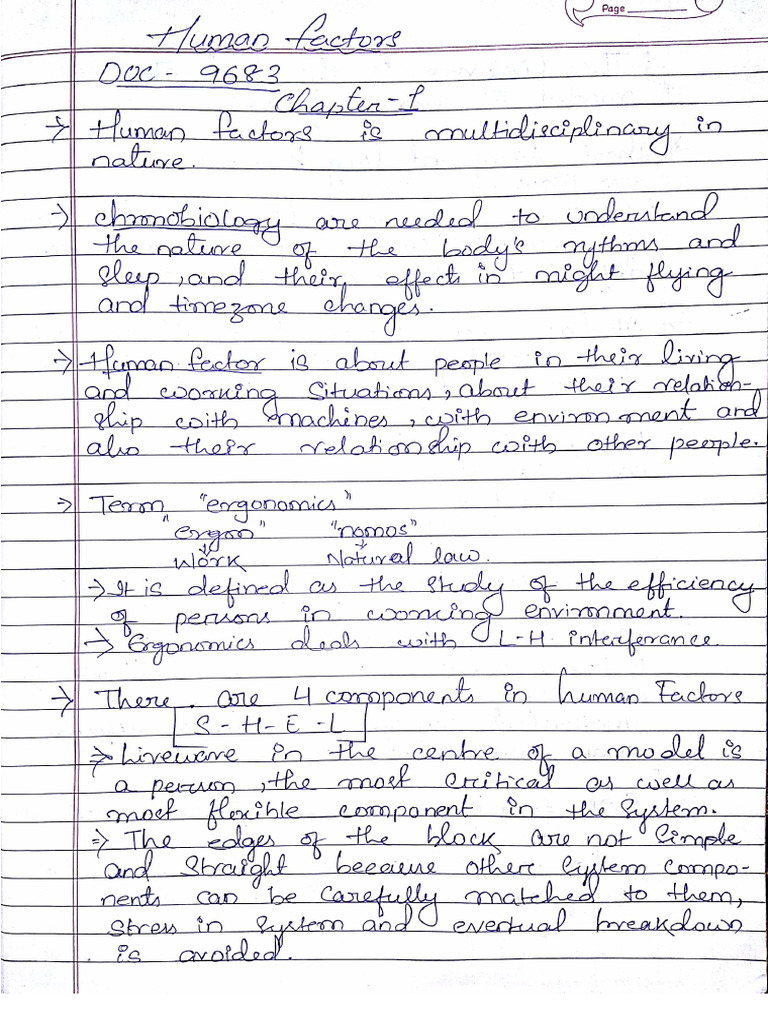 Page
Human factors
DOC - 9683
Chapter-1
→ Human factors is multidisciplinary in
nature.
→ chronobiology are needed to understand
the nature of the body's rythms and
sleep, and their effects in night flying
and timezone changes.
→ Human factor is about people in their living
and working situations, about their relation-
ship with machines, with environment and
also their relationship with other people.
→ Term "ergonomics"
"ergon" "nomos"
↓ ↓
Work Natural law.
→ It is defined as the study of the efficiency
of persons in working environment.
→ Ergonomics deals with L-H interferance
→ There are 4 components in human Factors
S - H - E - L
⇒ Liveware in the centre of a model is
a person, the most critical as well as
most flexible component in the system.
⇒ The edges of the block are not simple
and straight because other system compo-
nents can be carefully matched to them,
stress in system and eventual breakdown
is avoided.